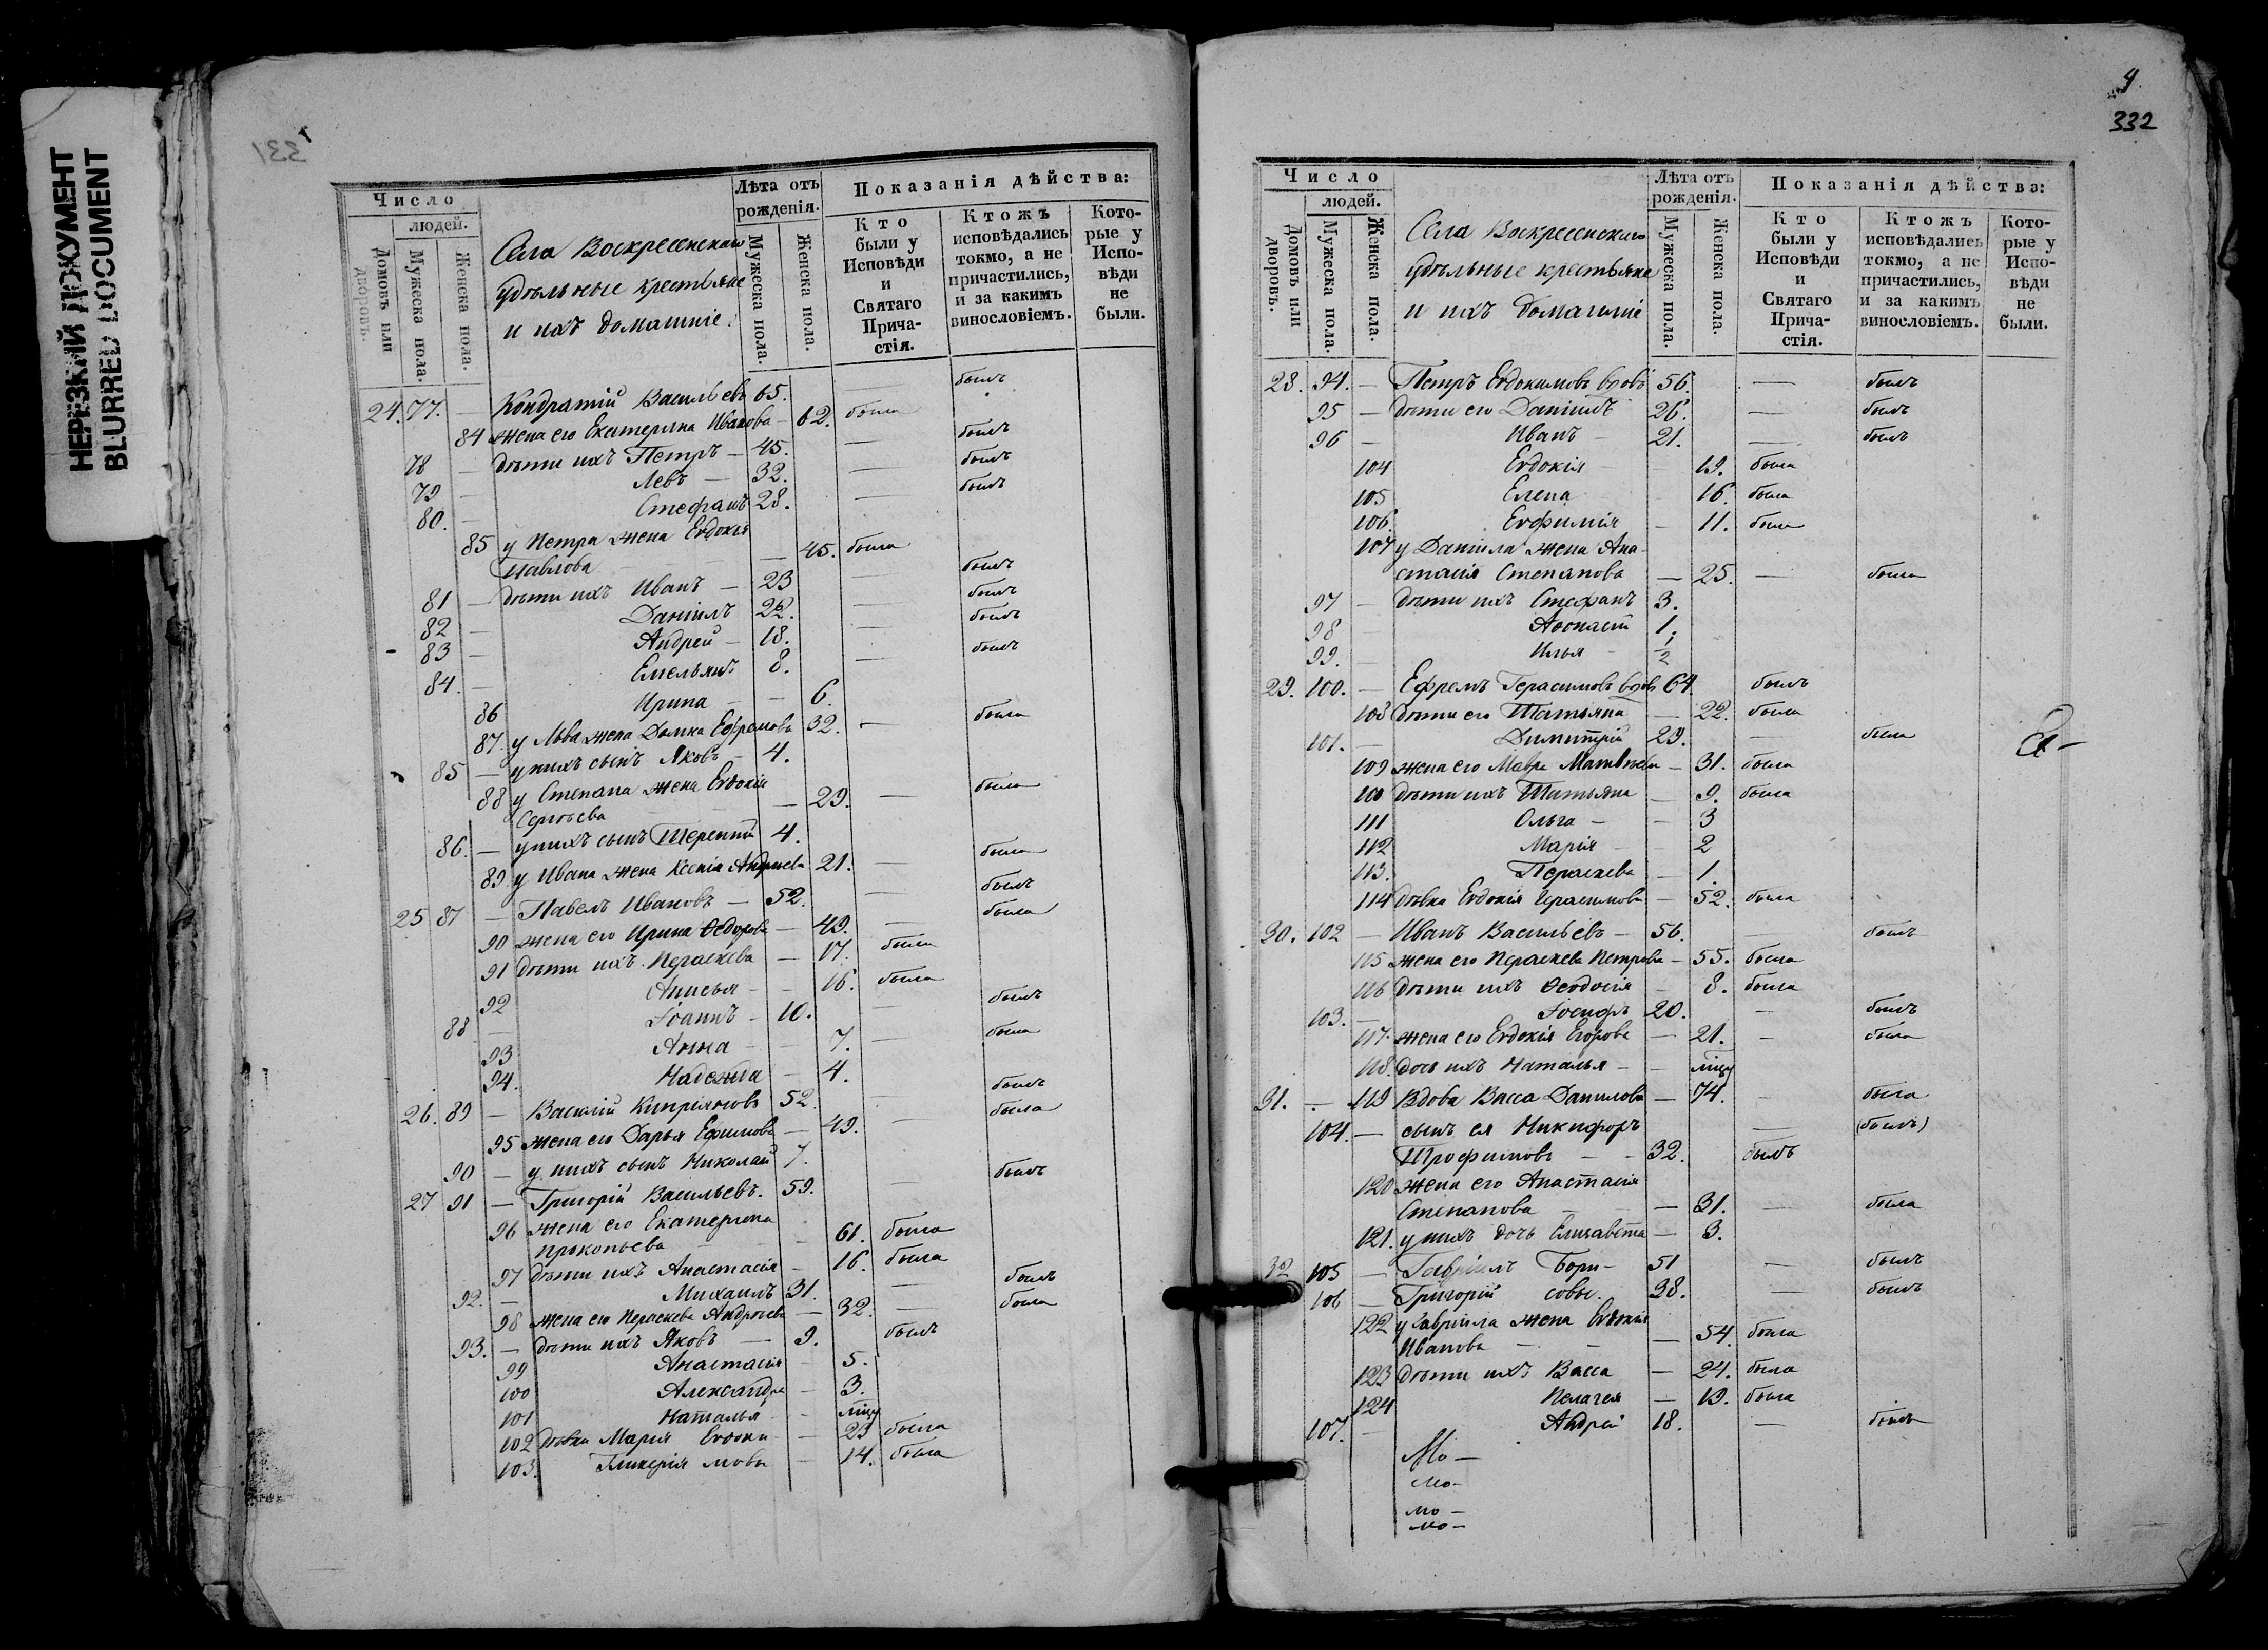 НЕРЕЗКИЙ ДОКУМЕНТ
BLURRED DOCUMENT
331
Число
людей.
Домовъ или дворовъ.
Мужеска пола.
Женска пола.
Села Воскресенскаго
удѣльные крестьяне
и ихъ домашніе.
Лѣта отъ рожденія.
Мужеска пола.
Женска пола.
Показанія дѣйства:
Кто были у Исповѣди и Святаго Причастія.
Ктожъ исповѣдались токмо, а не причастились, и за какимъ винословіемъ.
Которые у Исповѣди не были.
24. 77. — Кондратій Васильевъ 65. — былъ
84 жена его Екатерина Иванова — 62. была
78 — дѣти ихъ Петръ — 45. — былъ
79 — Левъ — 32. — былъ
80. — Стефанъ 28. — былъ
85 у Петра жена Евдокія
Павлова — 45. была
81 — дѣти ихъ Иванъ — 23 — былъ
82 — Даніилъ 22. — былъ
83 — Андрей — 18. — былъ
84. — Емельянъ 8. — былъ
86 Ирина — 6.
87. у Льва жена Домна Ефремова 32. — была
85 — у нихъ сынъ Яковъ — 4.
88 у Степана жена Евдокія
Сергѣева — 29. — была
86. — у нихъ сынъ Терентій 4.
89 у Ивана жена Ксенія Андреева 21. — была
25 87 — Павелъ Ивановъ — 52. — былъ
90 жена его Ирина Ѳедорова — 49. — была
91 дѣти ихъ Пераскева — 17. была
92 Анисья — 16. была
88 — Іоаннъ — 10. — былъ
93 Анна — 7. — была
94. Надежда — 4.
26. 89 — Василій Кипріяновъ 52. — былъ
95 жена его Дарья Ефимова — 49. — была
90 — у нихъ сынъ Николай 7.
27 91 — Григорій Васильевъ. 59. — былъ
96 жена его Екатерина
Прокопьева — 61. была
97 дѣти ихъ Анастасія — 16. была
92. — Михаилъ 31. — былъ
98 жена его Пераскева Андреева — 32. — была
93. — дѣти ихъ Яковъ — 9. былъ
99 Анастасія — 5.
100 Александра — 3.
101 Наталья — мцу
102 дѣвки Марія Евдоки- — 23 была
103. Гликерія мовы — 14. была
4.
332
Число
людей.
Домовъ или дворовъ.
Мужеска пола.
Женска пола.
Села Воскресенскаго
удѣльные крестьяне
и ихъ домашніе
Лѣта отъ рожденія.
Мужеска пола.
Женска пола.
Показанія дѣйства:
Кто были у Исповѣди и Святаго Причастія.
Ктожъ исповѣдались токмо, а не причастились, и за какимъ винословіемъ.
Которые у Исповѣди не были.
28. 94. — Петръ Евдокимовъ вдовъ 56. — былъ
95 — дѣти его Даніилъ 26. — былъ
96 — Иванъ — 21. — былъ
104 Евдокія — 19. была
105 Елена — 16. была
106. Евфимія — 11. была
107 у Даніила жена Ана-
стасія Степанова — 25. — была
97 — дѣти ихъ Стефанъ 3.
98 Аѳонасій 1.
99. — Илья — 1/2
29. 100. — Ефремъ Герасимовъ вдовъ 64. былъ
108 дѣти его Татьяна — 22. была
101. — Димитрій 29. — была
109 жена его Мавра Матвѣева — 31. была
100 дѣти ихъ Татьяна — 9. была
111 Ольга — 3
112 Марія — 2
113. Пераскева — 1.
114 дѣвка Евдокія Герасимова — 52. была
30. 102 — Иванъ Васильевъ — 56. — былъ
115 жена его Пераскева Петрова — 55. была
116 дѣти ихъ Ѳеодосія — 8. была
103. — Іосифъ 20. — былъ
117. жена его Евдокія Егорова — 21. — была
118. дочь ихъ Наталья — мцу
31. — 119 Вдова Васса Данилова — 74. — была
104. — сынъ ея Никифоръ — (былъ)
Трофимовъ — 32. былъ
120 жена его Анастасія
Степанова — 31. — была
121. у нихъ дочь Елизавета — 3.
32 105 — Гавріилъ Бори- 51 — былъ
106 — Григорій совы. 38. — былъ
122 у Гавріила жена Евдокія
Иванова — 54. была
123 дѣти ихъ Васса — 24. была
124 Пелагея — 19. была
107. — Андрей 18. — былъ
Мо —
мо —
мо —
мо —